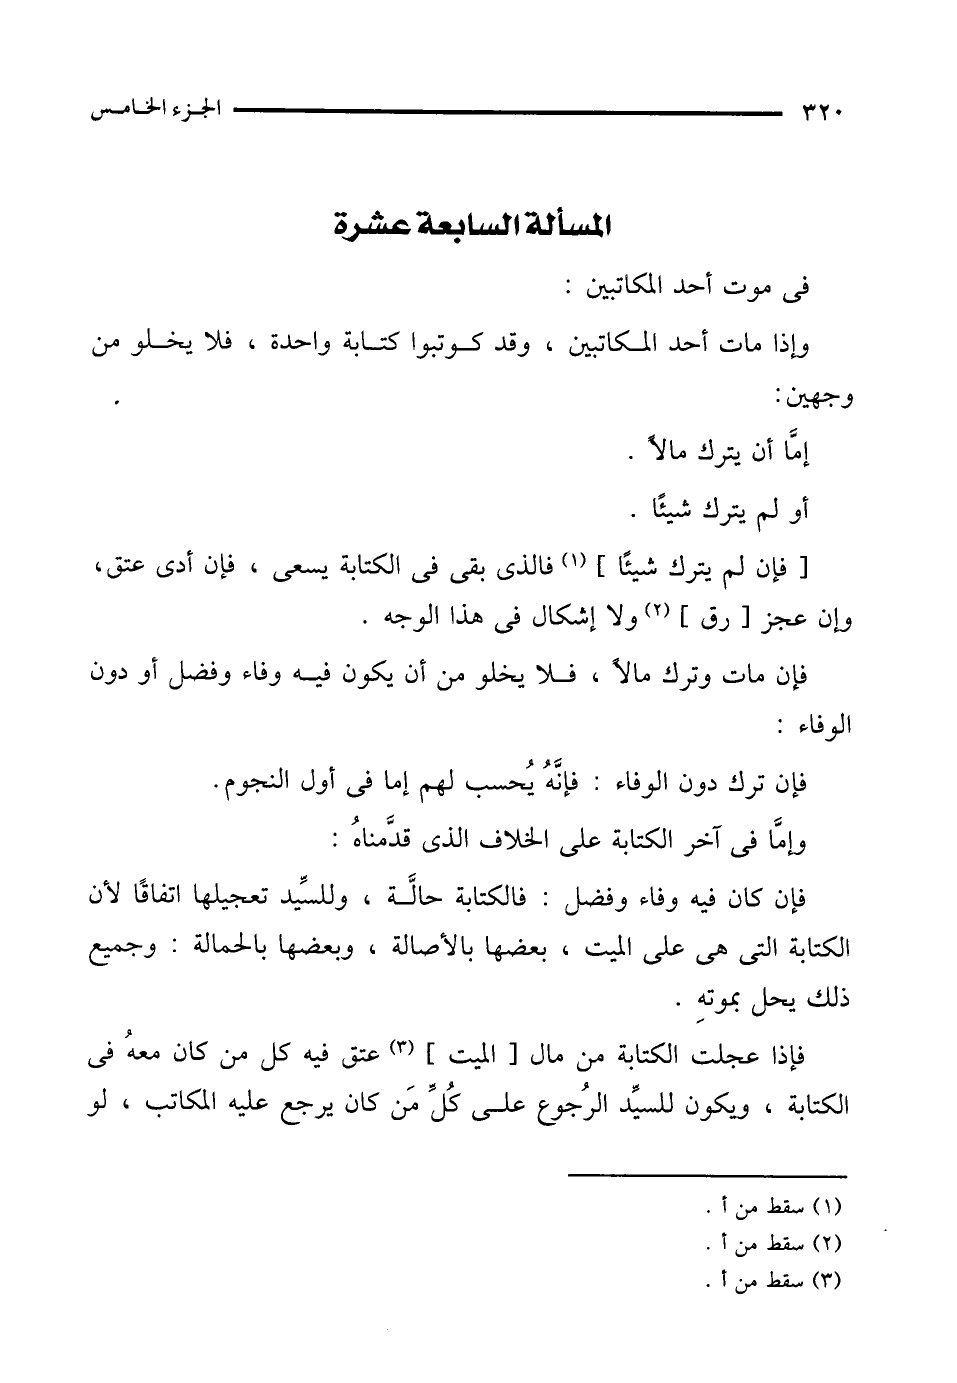 ٣٢٠ الجزء الخامس
المسألة السابعة عشرة
فى موت أحد المكاتبين :
وإذا مات أحد المكاتبين ، وقد كوتبوا كتابة واحدة ، فلا يخلو من
وجهين :
إمَّا أن يترك مالاً .
أو لم يترك شيئًا .
[ فإن لم يترك شيئًا ] (١) فالذى بقى فى الكتابة يسعى ، فإن أدى عتق ،
وإن عجز [ رق ] (٢) ولا إشكال فى هذا الوجه .
فإن مات وترك مالاً ، فلا يخلو من أن يكون فيه وفاء وفضل أو دون
الوفاء :
فإن ترك دون الوفاء : فإنَّهُ يُحسب لهم إما فى أول النجوم .
وإمَّا فى آخر الكتابة على الخلاف الذى قدَّمناهُ :
فإن كان فيه وفاء وفضل : فالكتابة حالَّة ، وللسيِّد تعجيلها اتفاقًا لأن
الكتابة التى هى على الميت ، بعضها بالأصالة ، وبعضها بالحمالة : وجميع
ذلك يحل بموتهِ .
فإذا عجلت الكتابة من مال [ الميت ] (٣) عتق فيه كل من كان معهُ فى
الكتابة ، ويكون للسيِّد الرُجوع على كُلِّ مَن كان يرجع عليه المكاتب ، لو
(١) سقط من أ .
(٢) سقط من أ .
(٣) سقط من أ .